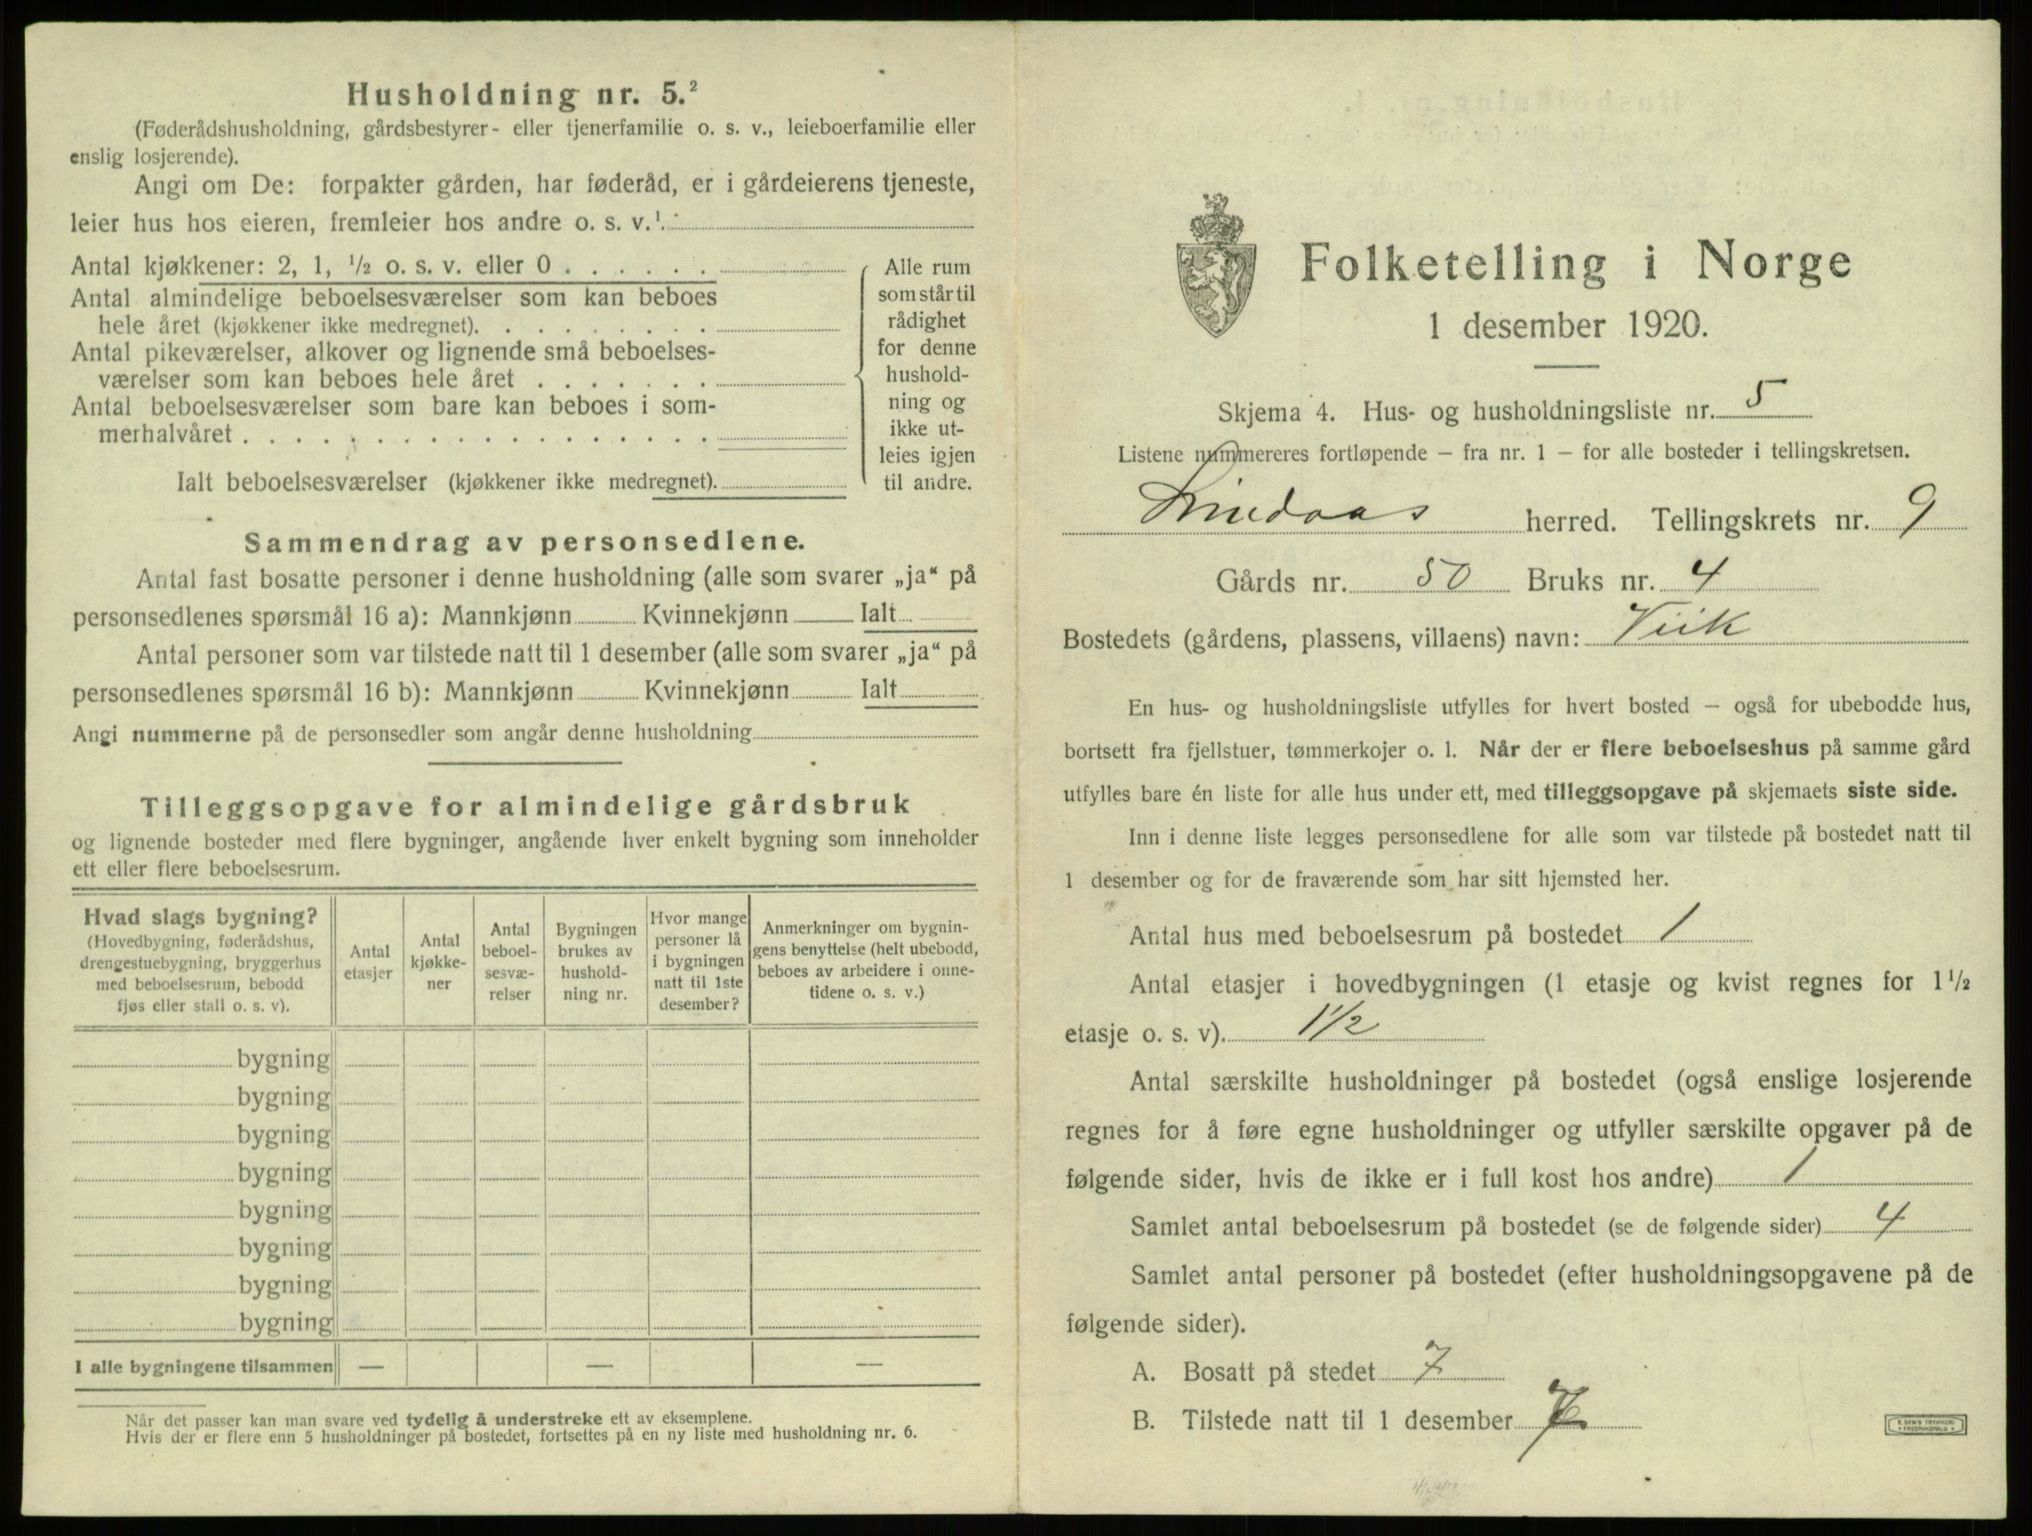 Husholdning nr. 5.²
(Føderådshusholdning, gårdsbestyrer- eller tjenerfamilie o. s. v., leieboerfamilie eller
enslig losjerende).
Angi om De: forpakter gården, har føderåd, er i gårdeierens tjeneste,
leier hus hos eieren, fremleier hos andre o. s. v.¹
Antal kjøkkener: 2, 1, ½ o. s. v. eller 0
Antal almindelige beboelsesværelser som kan beboes
hele året (kjøkkener ikke medregnet).
Antal pikeværelser, alkover og lignende små beboelses-
værelser som kan beboes hele året
Antal beboelsesværelser som bare kan beboes i som-
merhalvåret
Ialt beboelsesværelser (kjøkkener ikke medregnet).
Alle rum
som står til
rådighet
for denne
hushold-
ning og
ikke ut-
leies igjen
til andre.
Sammendrag av personsedlene.
Antal fast bosatte personer i denne husholdning (alle som svarer „ja“ på
personsedlenes spørsmål 16 a): Mannkjønn Kvinnekjønn Ialt
Antal personer som var tilstede natt til 1 desember (alle som svarer „ja“ på
personsedlenes spørsmål 16 b): Mannkjønn Kvinnekjønn Ialt
Angi nummerne på de personsedler som angår denne husholdning
Tilleggsopgave for almindelige gårdsbruk
og lignende bosteder med flere bygninger, angående hver enkelt bygning som inneholder
ett eller flere beboelsesrum.
Hvad slags bygning?
(Hovedbygning, føderådshus,
drengestuebygning, bryggerhus
med beboelsesrum, bebodd
fjøs eller stall o. s. v).
Antal
etasjer
Antal
kjøkke-
ner
Antal
beboel-
sesvæ-
relser
Bygningen
brukes av
hushold-
ning nr.
Hvor mange
personer lå
i bygningen
natt til 1ste
desember?
Anmerkninger om bygnin-
gens benyttelse (helt ubebodd,
beboes av arbeidere i onne-
tidene o. s. v.)
bygning
bygning
bygning
bygning
bygning
bygning
bygning
bygning
I alle bygningene tilsammen — — —
Når det passer kan man svare ved tydelig å understreke ett av eksemplene.
Hvis der er flere enn 5 husholdninger på bostedet, fortsettes på en ny liste med husholdning nr. 6.
Folketelling i Norge
1 desember 1920.
Skjema 4. Hus- og husholdningsliste nr. 5
Listene nummereres fortløpende – fra nr. 1 – for alle bosteder i tellingskretsen.
Lindaas herred. Tellingskrets nr. 9
Gårds nr. 50 Bruks nr. 4
Bostedets (gårdens, plassens, villaens) navn: Viik
En hus- og husholdningsliste utfylles for hvert bosted – også for ubebodde hus,
bortsett fra fjellstuer, tømmerkojer o. l. Når der er flere beboelseshus på samme gård
utfylles bare én liste for alle hus under ett, med tilleggsopgave på skjemaets siste side.
Inn i denne liste legges personsedlene for alle som var tilstede på bostedet natt til
1 desember og for de fraværende som har sitt hjemsted her.
Antal hus med beboelsesrum på bostedet 1
Antal etasjer i hovedbygningen (1 etasje og kvist regnes for 1½
etasje o. s. v). 1½
Antal særskilte husholdninger på bostedet (også enslige losjerende
regnes for å føre egne husholdninger og utfyller særskilte opgaver på de
følgende sider, hvis de ikke er i full kost hos andre) 1
Samlet antal beboelsesrum på bostedet (se de følgende sider) 4
Samlet antal personer på bostedet (efter husholdningsopgavene på de
følgende sider).
A. Bosatt på stedet 7
B. Tilstede natt til 1 desember 7